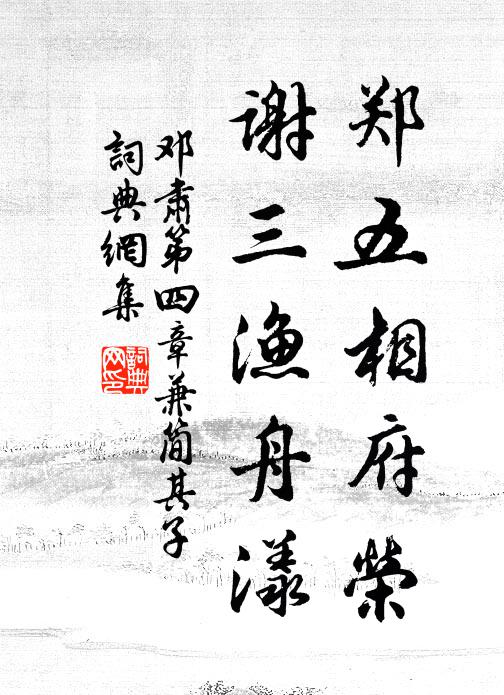 郑五相府荣
谢三渔舟漾
邓肃第四章兼简其子
词典网集
词典网印